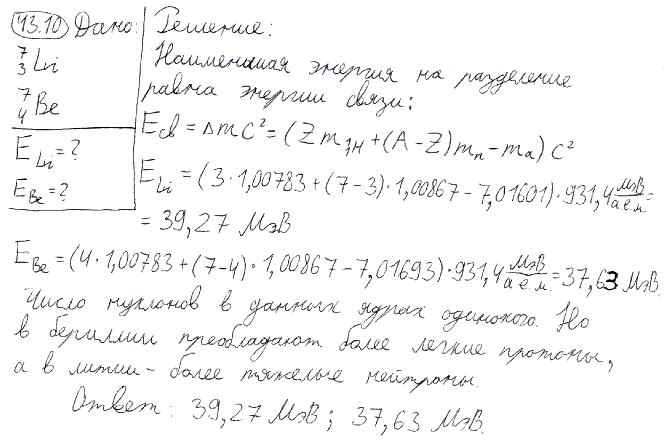 43.10 Дано: Решение:
⁷₃Li Наименьшая энергия на разделение
⁷₄Be равна энергии связи:
E_Li = ? E_св = Δmc² = (Zm_¹H + (A – Z)m_n – m_a)c²
E_Be = ? E_Li = (3·1,00783 + (7–3)·1,00867 – 7,01601)·931,4 МэВ/а.е.м. =
= 39,27 МэВ
E_Be = (4·1,00783 + (7–4)·1,00867 – 7,01693)·931,4 МэВ/а.е.м. = 37,63 МэВ.
Число нуклонов в данных ядрах одинаково. Но
в бериллии преобладают более легкие протоны,
а в литии – более тяжелые нейтроны.
Ответ: 39,27 МэВ; 37,63 МэВ.